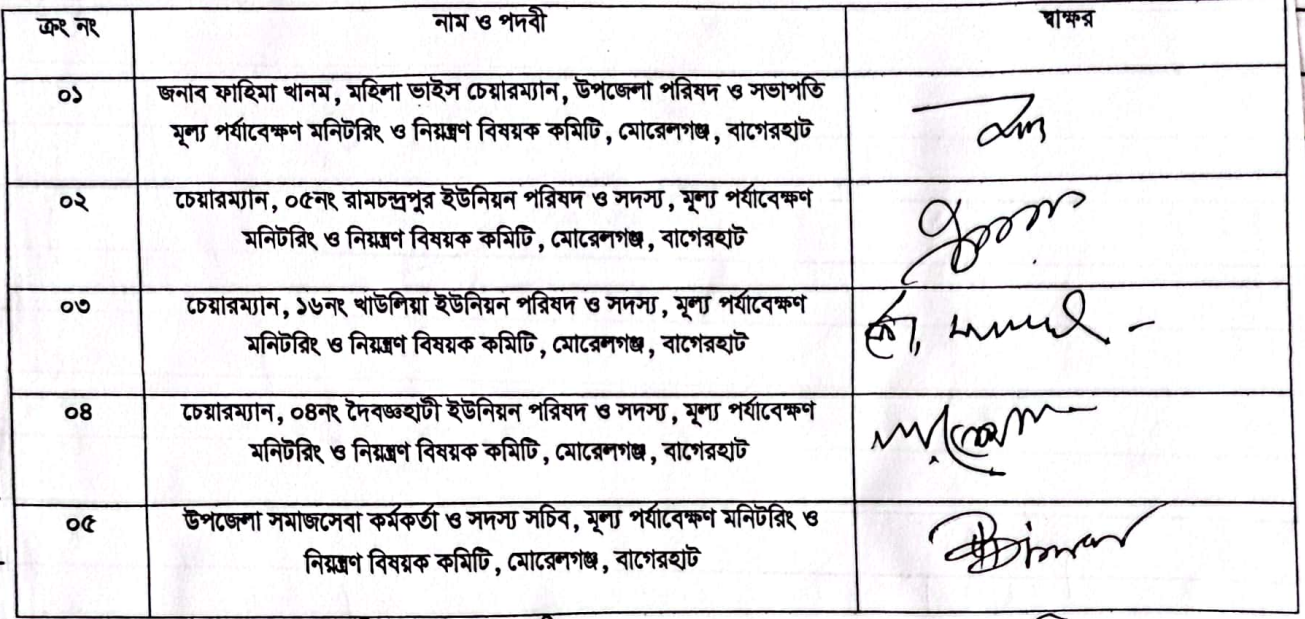 ক্রং নং নাম ও পদবী স্বাক্ষর
০১ জনাব ফাহিমা খানম, মহিলা ভাইস চেয়ারম্যান, উপজেলা পরিষদ ও সভাপতি
মূল্য পর্যাবেক্ষণ মনিটরিং ও নিয়ন্ত্রণ বিষয়ক কমিটি, মোরেলগঞ্জ, বাগেরহাট
০২ চেয়ারম্যান, ০৫নং রামচন্দ্রপুর ইউনিয়ন পরিষদ ও সদস্য, মূল্য পর্যাবেক্ষণ
মনিটরিং ও নিয়ন্ত্রণ বিষয়ক কমিটি, মোরেলগঞ্জ, বাগেরহাট
০৩ চেয়ারম্যান, ১৬নং খাউলিয়া ইউনিয়ন পরিষদ ও সদস্য, মূল্য পর্যাবেক্ষণ
মনিটরিং ও নিয়ন্ত্রণ বিষয়ক কমিটি, মোরেলগঞ্জ, বাগেরহাট
০৪ চেয়ারম্যান, ০৪নং দৈবজ্ঞহাটী ইউনিয়ন পরিষদ ও সদস্য, মূল্য পর্যাবেক্ষণ
মনিটরিং ও নিয়ন্ত্রণ বিষয়ক কমিটি, মোরেলগঞ্জ, বাগেরহাট
০৫ উপজেলা সমাজসেবা কর্মকর্তা ও সদস্য সচিব, মূল্য পর্যাবেক্ষণ মনিটরিং ও
নিয়ন্ত্রণ বিষয়ক কমিটি, মোরেলগঞ্জ, বাগেরহাট